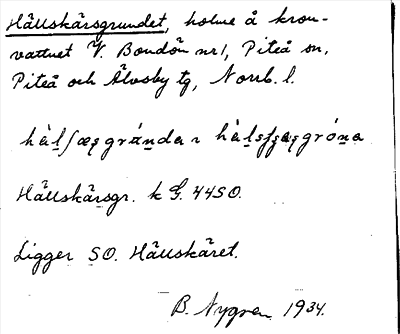 Hällskärsgrundet, holme å kron-
vattnet V. Bondön nr 1, Piteå sn,
Piteå och Älvsby tg, Norrb. l.
Hällskärsgr. k G. 44SO.
Ligger SO. Hällskäret.
B. Nygren 1934.